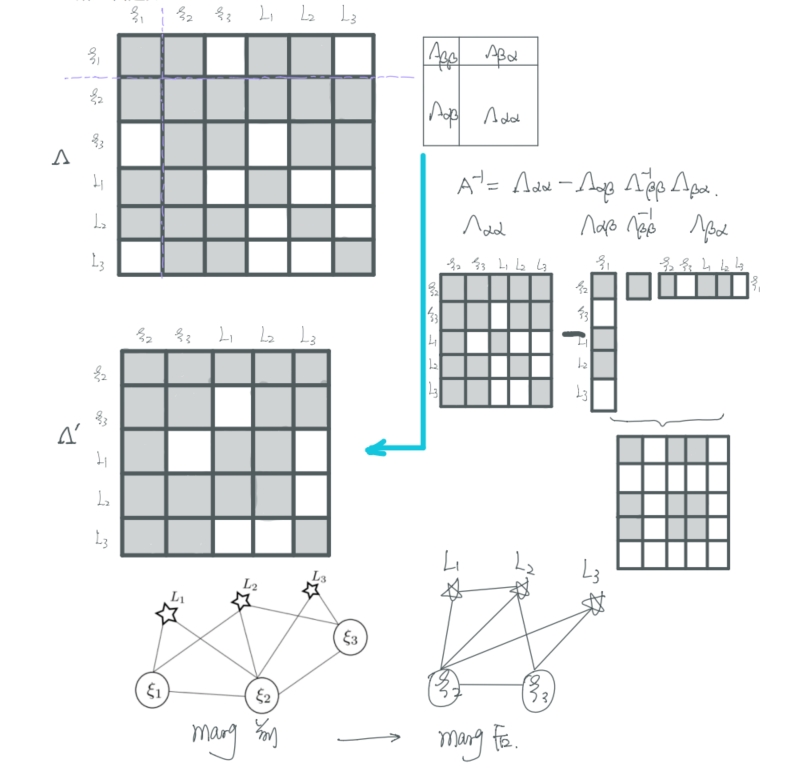 ξ1 ξ2 ξ3 L1 L2 L3
ξ1
ξ2
ξ3
L1
L2
L3
Λ
Λββ Λβα
Λαβ Λαα
A⁻¹ = Λαα − Λαβ Λββ⁻¹ Λβα.
Λαα Λαβ Λββ⁻¹ Λβα
ξ2 ξ3 L1 L2 L3
ξ2
ξ3
L1
L2
L3
−
ξ1
ξ2
ξ3
L1
L2
L3
ξ2 ξ3 L1 L2 L3
ξ1
ξ2 ξ3 L1 L2 L3
ξ2
ξ3
L1
L2
L3
Λ′
L1 L2 L3
ξ1 ξ2 ξ3
marg
L1 L2 L3
ξ2 ξ3
marg